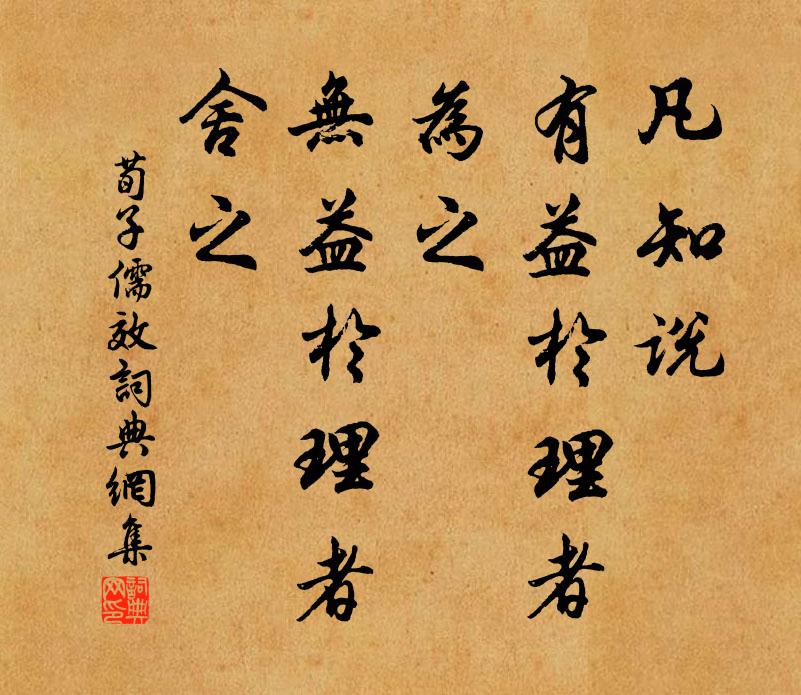 凡知说
有益於理者
為之
無益於理者
舍之
荀子儒效詞典網集
詞典网印